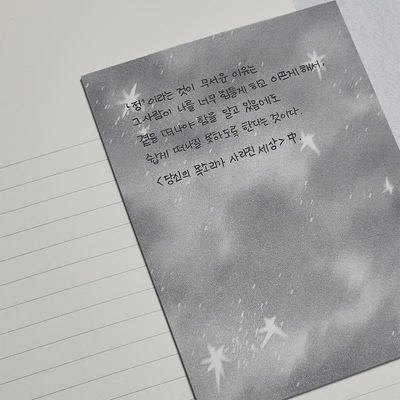 '정' 이라는 것이 무서운 이유는
그사람이 나를 너무 힘들게 하고 아프게 해서,
곁을 떠나야 함을 알고 있음에도
쉽게 떠나질 못하도록 한다는 것이다.
<당신의 목소리가 사라진 세상> 中.